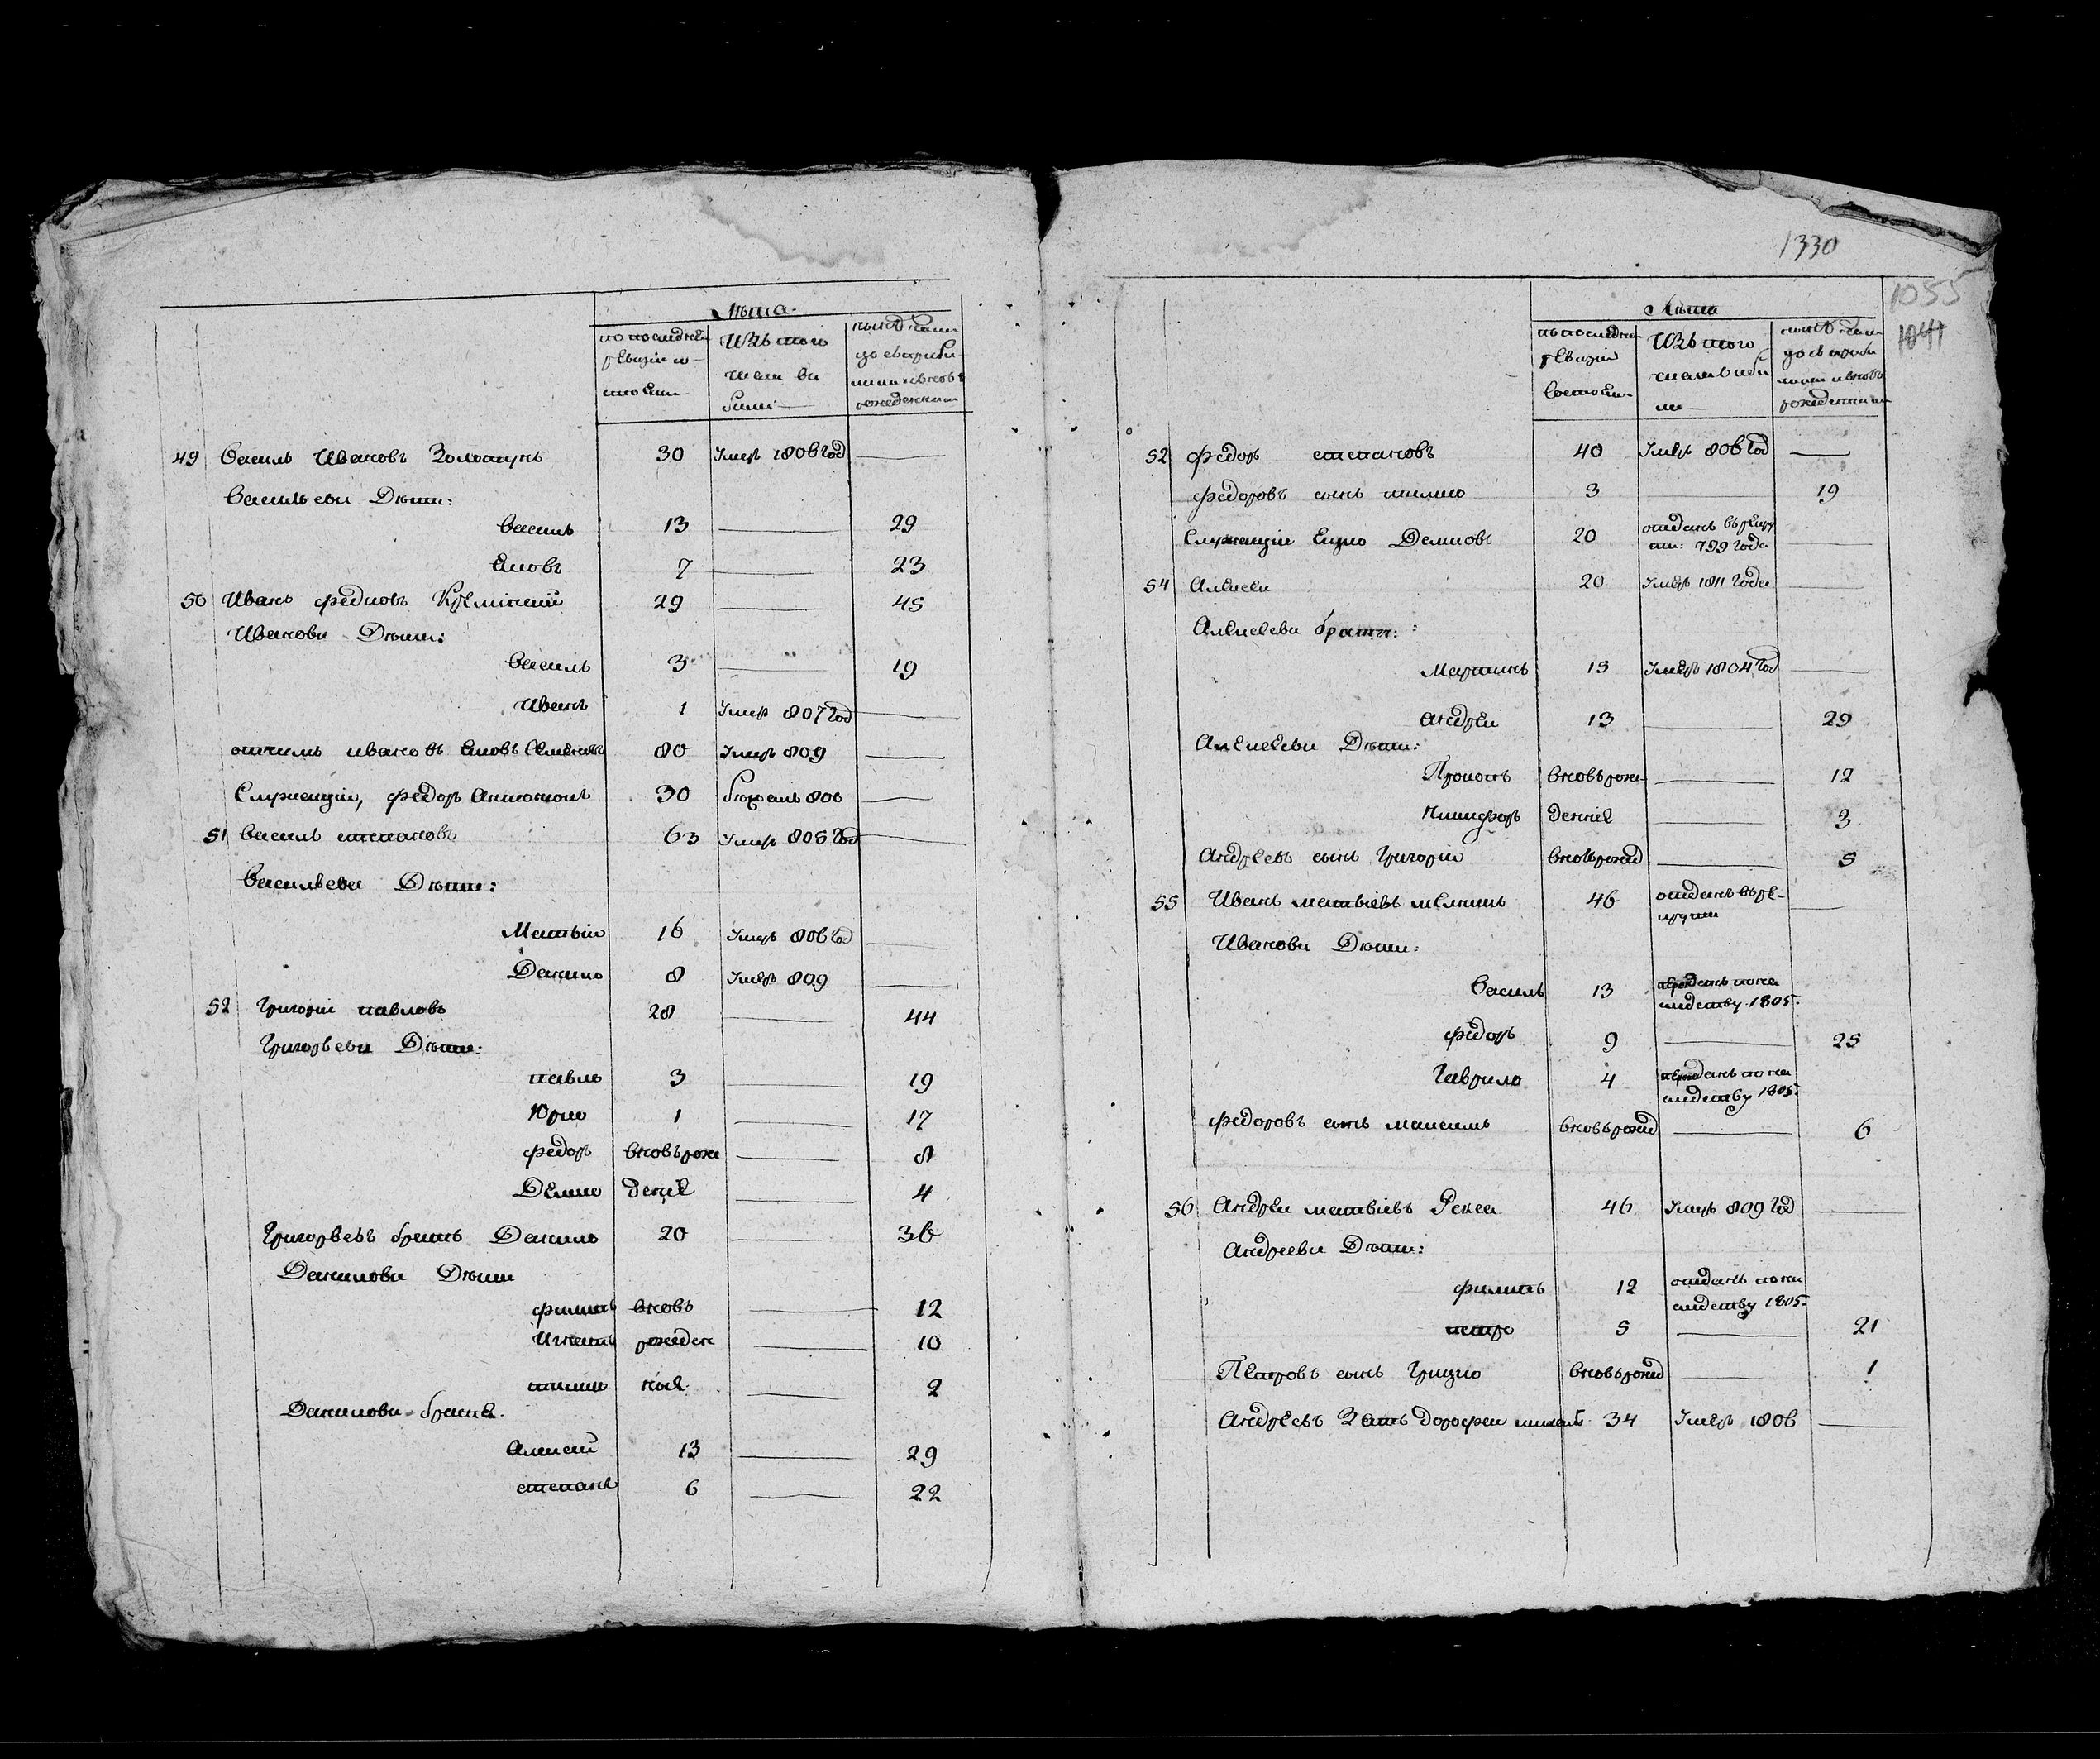 Лѣта
по последней
ревизіи со-
стояли
Изъ того
числа вы
были
ныне съ при
рожденными
49 Василь Ивановъ Золотунъ 30 Умеръ 1806 год
Васильеви Дѣти:
Василь 13 29
Яковъ 7 23
50 Иванъ Федировъ 29 45
Иванови Дѣти:
Василь 3 19
Иванъ 1 Умер 807 год
отчимъ ивановъ Яковъ 80 Умеръ 809
Служащіи, Федоръ 30 806
51 Василь степановъ 63 Умеръ 805 год
Васильеви Дѣти:
Матвіи 16 Умеръ 806 год
Данило 8 Умеръ 809
52 Григоріи павловъ 28 44
Григорьеви Дѣти:
павло 3 19
Юрко 1 17
федоръ вновь рож 8
Демко деніе 4
Григорьевъ братъ Данило 20 36
Данилови Дѣти
филипъ вновь 12
Игнатъ рожден 10
тишко ные 2
Данилови братья
Алексей 13 29
степанъ 6 22
1330
1055
1041
Лѣта
по последней
ревизіи
состояли
Изъ того
числа выбы
ли
рожденными
52 федоръ степановъ 40 Умеръ 806 год
федоровъ сынъ тишко 3 19
Служащіи Ецко Демковъ 20 отданъ въ рекру
ти: 799 года
54 Алексеи 20 Умеръ 1811 года
Алексееви братя:
Мартинъ 15 Умеръ 1804 год
Андреи 13 29
Алексееви Дѣти:
Прокопъ вновь рож 12
Никифоръ деніе 3
Андреевъ сынъ Григоріи вновь рожд 5
55 Иванъ матвіевъ 46 отданъ въ ре-
крути
Иванови Дѣти:
Василь 13 отданъ по на
следству 1805
федоръ 9 25
Гаврило 4 отданъ по на
следству 1805
федоровъ сынъ максимъ вновь рожд 6
56 Андреи матвіевъ Река 46 Умеръ 809 год
Андрееви Дѣти:
филипъ 12 отданъ по на
следству 1805
петро 5 21
Петровъ сынъ Грицко вновь рожд 1
Андреевъ Зять дорофеи 34 Умеръ 1806